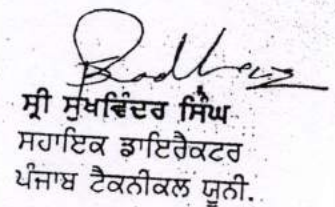 ਸ੍ਰੀ ਸੁਖਵਿੰਦਰ ਸਿੰਘ
ਸਹਾਇਕ ਡਾਇਰੈਕਟਰ
ਪੰਜਾਬ ਟੈਕਨੀਕਲ ਯੂਨੀ.